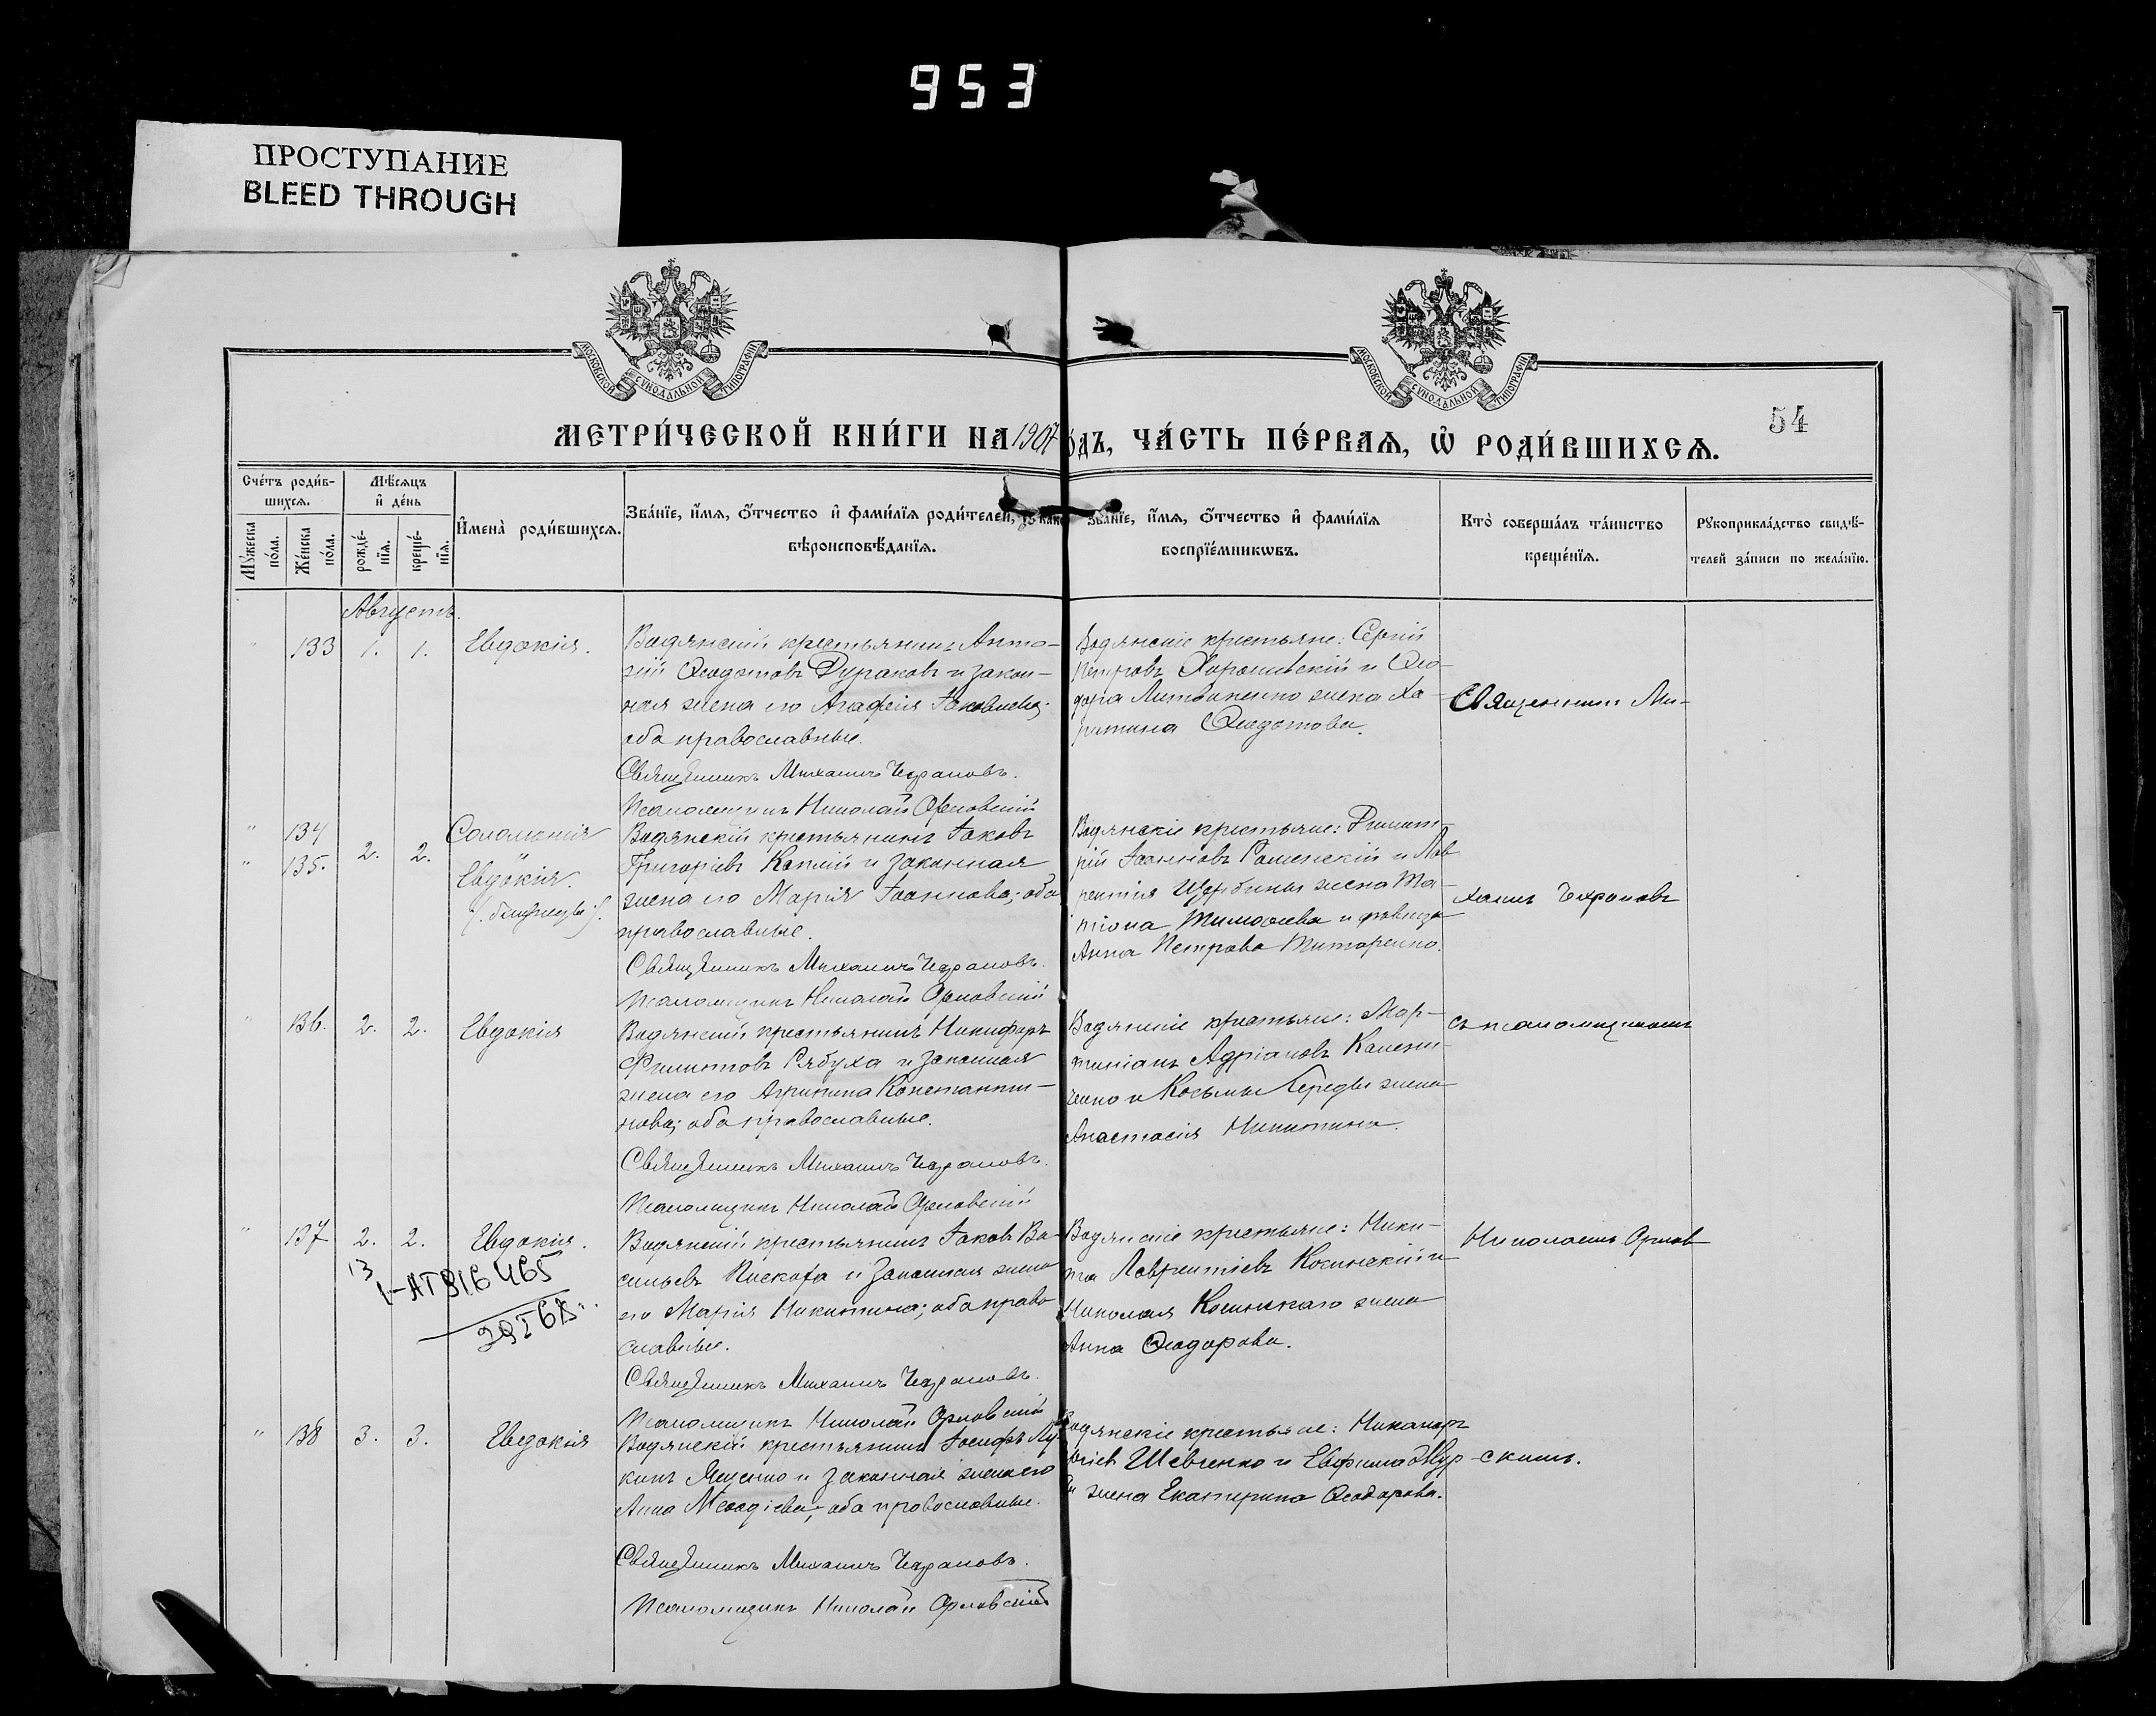 953
ПРОСТУПАНИЕ
BLEED THROUGH
МОСКОВСКОЙ СѴНОДАЛЬНОЙ ТИПОГРАФІИ
МОСКОВСКОЙ СѴНОДАЛЬНОЙ ТИПОГРАФІИ
54
МЕТРИ́ЧЕСКОЙ КНИ́ГИ НА 1907 ГО́ДЪ, ЧА́СТЬ ПЕ́РВАѦ, Ѽ РОДИ́ВШИХСѦ.
Сче́тъ роди́в-
шихсѧ.
Мꙋ́жеска по́ла.
Же́нска по́ла.
Мѣ́сѧцъ и҆ де́нь
рожде́-нїѧ.
креще́-нїѧ.
И҆мена̀ роди́вшихсѧ.
Зва́нїе, и҆́мѧ, ѻ҆́тчество и҆ фами́лїѧ роди́телей,
вѣроисповѣ́данїѧ.
Зва́нїе, и҆́мѧ, ѻ҆́тчество и҆ фами́лїѧ
воспрїе́мникѡвъ.
Кто̀ соверша́лъ та́инство
креще́нїѧ.
Рꙋкоприкла́дство свидѣ́-
телей за́писи по жела́нїю.
Августъ.
" 133 1. 1. Евдокія.
Водянскій крестьянинъ Анто-
ній Ѳеодотовъ Дураковъ и закон-
ная жена его Агафія Іаковлева;
оба православные.
Священникъ Михаилъ
Псаломщикъ Николай Орловскій
Водянскіе крестьяне: Сергій
Петровъ и Ѳео-
дора Литвиненко жена Ха-
ритина Ѳеодотова.
Священникъ Ми-
" 134 Соломонія
" 135. 2. 2. Евдокія.
/: близнецы :/.
Водянскій крестьянинъ Іаковъ
Григоріевъ и законная
жена его Марія Іоаннова; оба
православные.
Священникъ Михаилъ
Псаломщикъ Николай Орловскій
Водянскіе крестьяне: Димит-
рій Іоанновъ Роменскій и Лав-
рентія Щербины жена Та-
тіана Тимоѳеева и дѣвица
Анна Петрова Титаренко.
хаилъ
" 136. 2. 2. Евдокія
Водянскій крестьянинъ Никифоръ
Филиповъ Рябуха и законная
жена его Агрипина Константи-
нова; оба православные.
Священникъ Михаилъ
Псаломщикъ Николай Орловскій
Водянскіе крестьяне: Мар-
тиніанъ Адріановъ
и Косьмы Середы жена
Анастасія Никитина.
съ псаломщикомъ
" 137 2. 2. Евдокія.
13
1-АТ 816465
Водянскій крестьянинъ Іаковъ Ва-
сильевъ Пискоха и законная жена
его Марія Никитина; оба право-
славные.
Священникъ Михаилъ
Псаломщикъ Николай Орловскій
Водянскіе крестьяне: Ники-
та Лаврентіевъ Косинскій и
Николая Косинскаго жена
Анна Ѳеодорова.
Николаемъ Орлов-
" 138 3. 3. Евдокія
Водянскій крестьянинъ Іосифъ Лу-
кинъ Яценко и законная жена его
Анна Меѳодіева; оба православные.
Священникъ Михаилъ
Псаломщикъ Николай Орловскій
Водянскіе крестьяне: Никаноръ
Шевченко и Евфима
жена Екатерина Ѳеодорова.
скимъ.